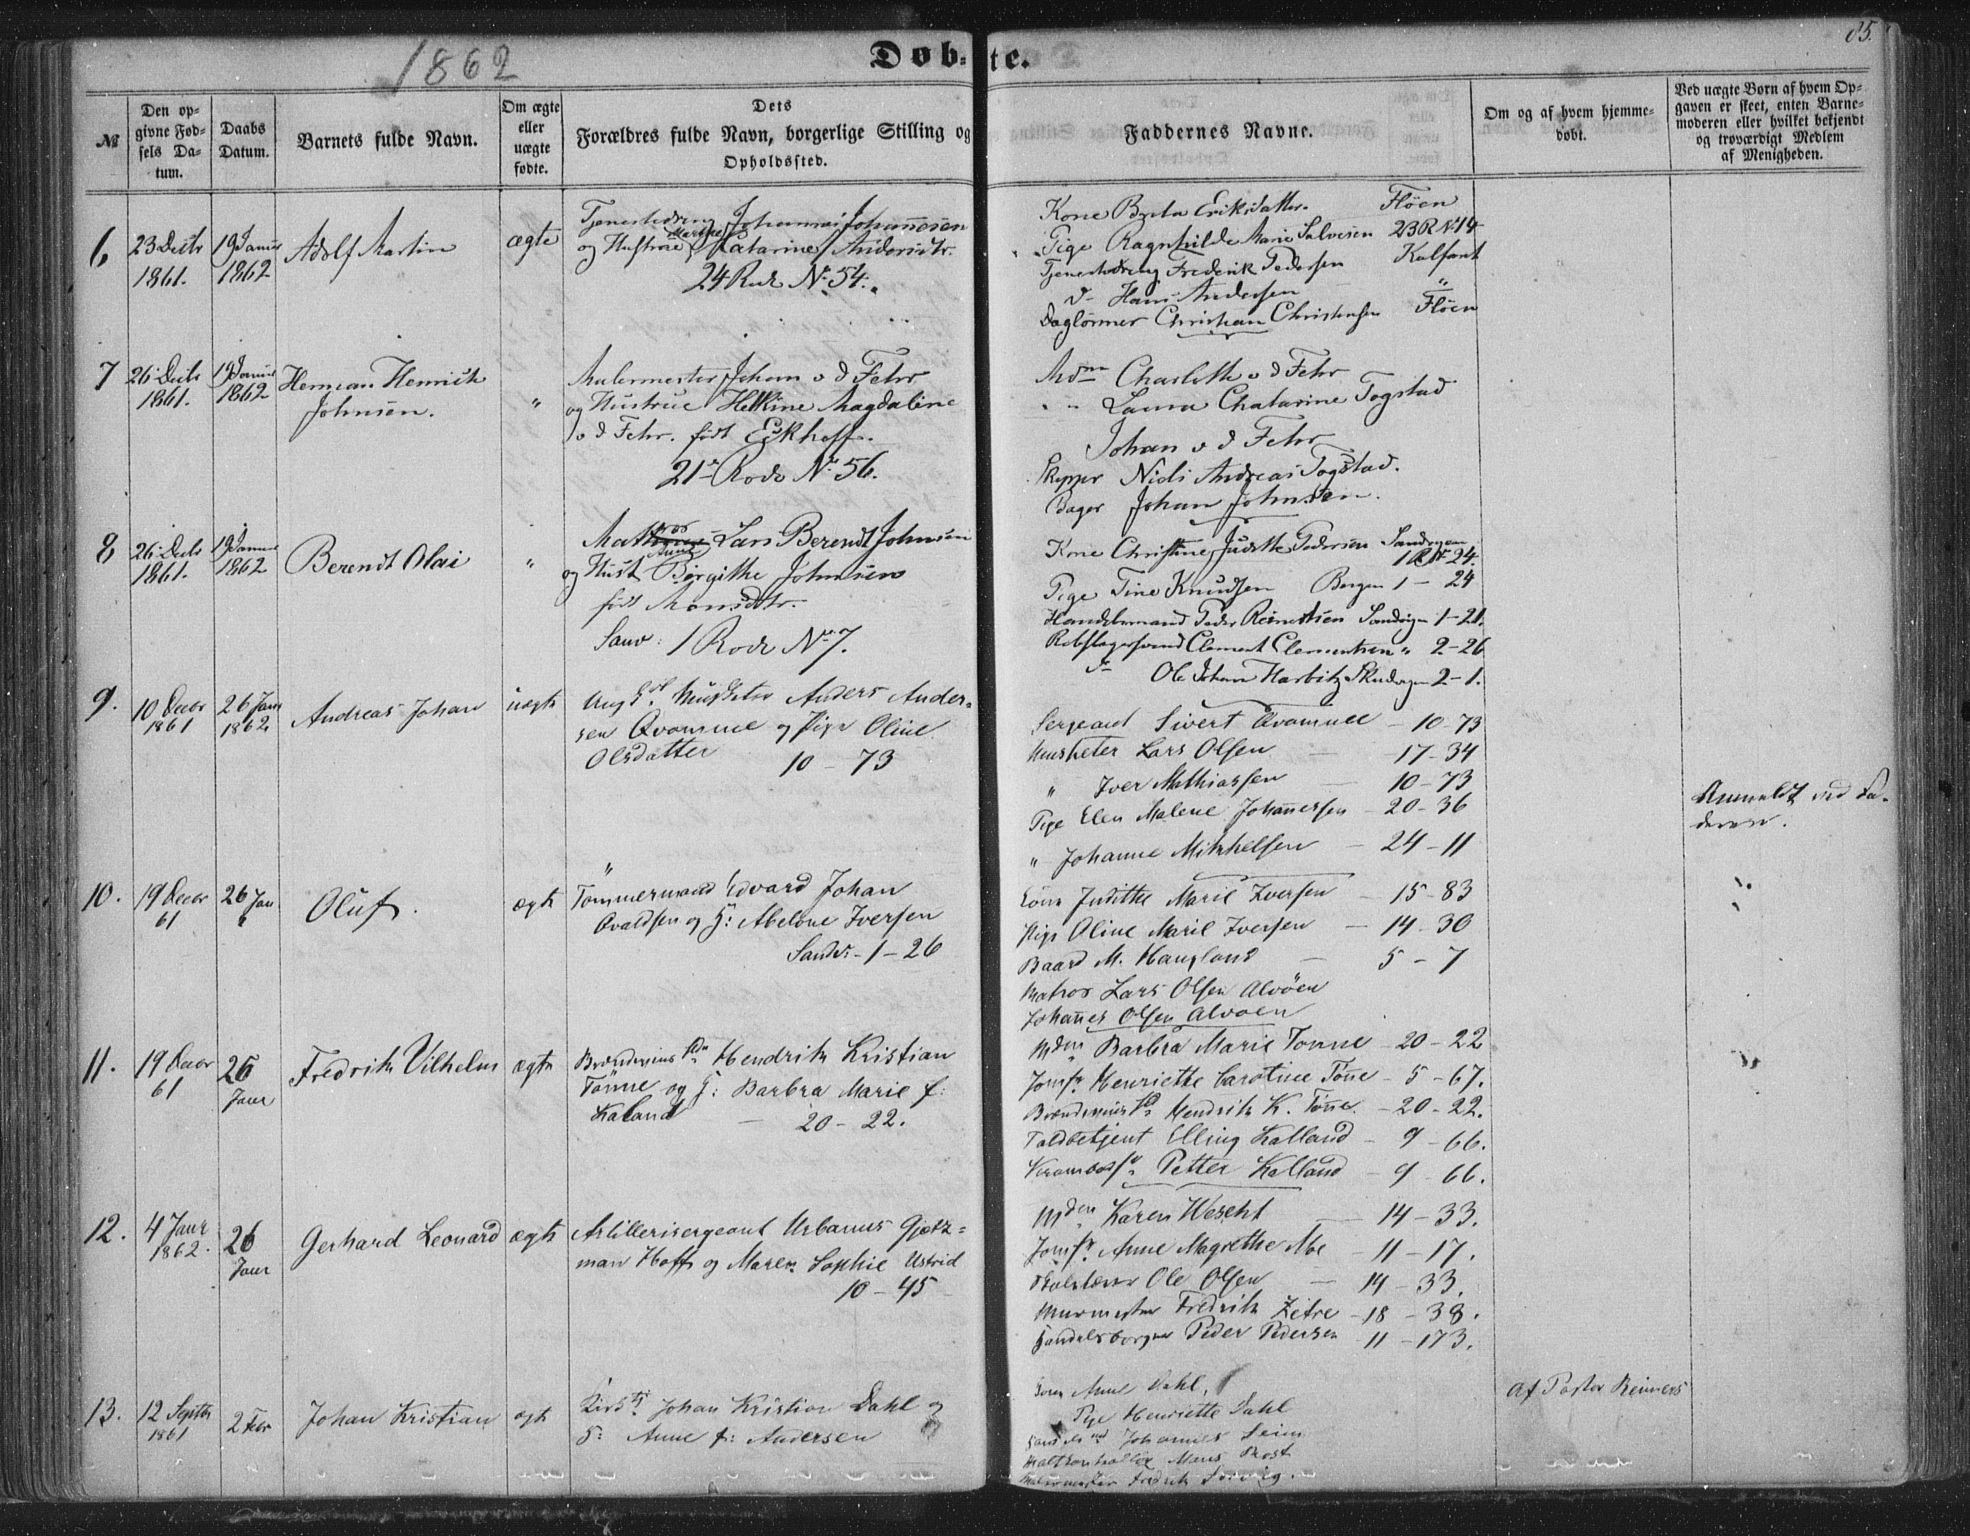 1862
Døb-te.
85.
№
Den opgivne Fødsels Datum.
Daabs Datum.
Barnets fulde Navn.
Om ægte eller uægte fødte.
Dets Forældres fulde Navn, borgerlige Stilling og Opholdssted.
Faddernes Navne.
Om og af hvem hjemmedøbt.
Ved uægte Børn af hvem Opgaven er skeet, enten Barnemoderen eller hvilket bekjendt og troværdigt Medlem af Menigheden.
6
23 Decbr 1861.
19 Januar 1862
Adolf Martin
ægte
Tjenestedreng Johannes Johannesen
og Hustrue Marthe Katarine Andersdtr.
24 Rode No 54.
Kone Breta Eriksdatter. Fløen
Pige Ragnhilde Marie Salvesen 23 R No 14
Tjenestedreng Frederik Pedersen Kalfaret
d- Hans Andersen "
Daglønner Christian Christensen Fløen
7
26 Decbr 1861.
19 Januar 1862
Herman Henrich
Johnsen.
"
Malermester Johan v d Fehr
og Hustrue Helkine Magdalene
v d Fehr. født Eckhoff.
21 Rode No 56.
Mdm Charlotte v d Fehr
" Laura Chatarine Togstad
Johan v d Fehr
Skipper Niels Andreas Togstad.
Bager Johan Johnsen.
8
26 Decbr 1861.
19 Januar 1862
Berendt Olai
"
Matros Lars Berendt Johnsen
og Hust Anne Børgithe Johnsen
født Monsdtr.
Sanv: 1 Rode No 7.
Kone Christine Judithe Pedersen Sandvigen
1 R No 24.
Pige Tine Knudsen Bergen 1 - 24
Handelsmand Peder Reinertsen Sandvigen 1-21.
Rebslagersvend Clement Clementsen " 2-26
d- Ole Johan Harbitz Skudevigen 2-1.
9.
10 Decbr 1861
26 Janr 1862
Andreas Johan
uægte
Ungk. Musketer Anders Ander-
sen Qvamme og Pige Oline
Olsdatter 10 - 73
Sergeant Sivert Qvamme - 10-73
Musketer Lars Olsen - 17-34
" Iver Mathiassen - 10-73
Pige Elen Malene Johannessen - 20-36
" Johanne Mikkelsen - 24-11
Anmeldt ved Fa-
deren.
10.
19 Decbr 61
26 Jan
Oluf.
ægte
Tømmermand Edvard Johan
Ovaldsen og H: Abelone Iversen
Sandv: - 1 - 26
Kone Judithe Marie Iversen - 15-83
Pige Oline Marie Iversen - 14-30
Baard M. Haugland - 5 - 7
Matros Lars Olsen Alvøen
Johannes Olsen Alvøen
11.
19 Decbr 61
26 Janr
Fredrik Vilhelm
ægte
Brændeviinshdr Hendrik Kristian
Tønne og H: Barbra Marie f:
Kaland - 20 - 22.
Mdm Barbra Marie Tonne - 20-22
Jomfr Henriette Carotine Tønne - 5 - 67.
Brændeviinshd Hendrik K. Tønne - 20-22.
Toldbetjent Elling Kalland - 9 - 66.
Krambodsv Petter Kalland - 9 - 66.
12.
4 Janr 1862.
26 Janr
Gerhard Leonard
ægte
Artillerisergeant Urbanus Gjetz-
man Hoff og Maren Sophie Ustrid
10 - 45
Mdm Karen Wescht - 14 - 33.
Jomfr Anne Magrethe Moe - 11 - 17.
Skolelærer Ole Olsen - 14 - 33.
Murmester Fredrik Zetre - 18 - 38.
Handelsborger Peder Pedersen - 11 - 173.
13.
12 Septbr 1861
2 Febr
Johan Kristian
ægte
Johan Kristian Dahl og
H: Anne f: Andersen
Kone Anne Dahl,
Pige Henriette Dahl
Johannes Seim
Mons Skost
Malermester Fredrik
Af Pastor Reimers